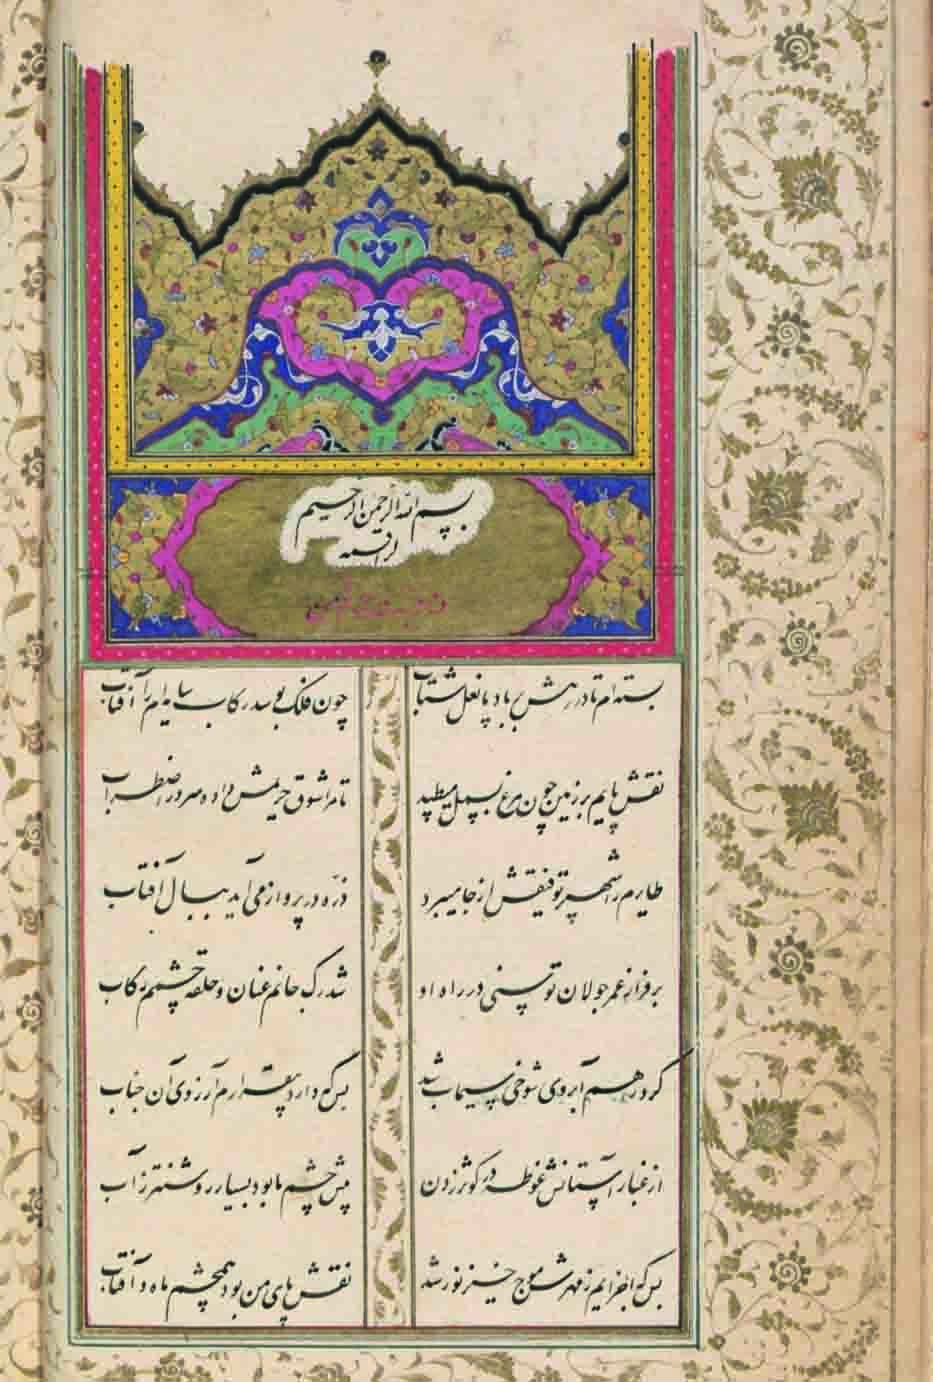 بسم الله الرحمن الرحیم
بسته ام تا در رهش بر باد پا نعل شتاب
چون فلک بوسد رکاب سایه ام را آفتاب
نقش پایم بر زمین چون مرغ بسمل میطپد
تا مرا شوق حریمش داده سر در اضطراب
طایرم را شهپر توفیقش از جا میبرد
ذره در پرواز می آید ببال آفتاب
بر فراز عمر جولان توسنی در راه او
شد رگ جانم عنان و حلقه چشمم رکاب
گرد راهم آبروی شوخی سیماب شد
بس که دارد بیقرارم آرزوی آن جناب
از غبار آستانش غوطه در کوثر زدن
پیش چشم ما بود بسیار روشنتر ز آب
بس که اجزایم ز مهرش موج خیز نور شد
نقش پای من بود همچشم ماه و آفتاب